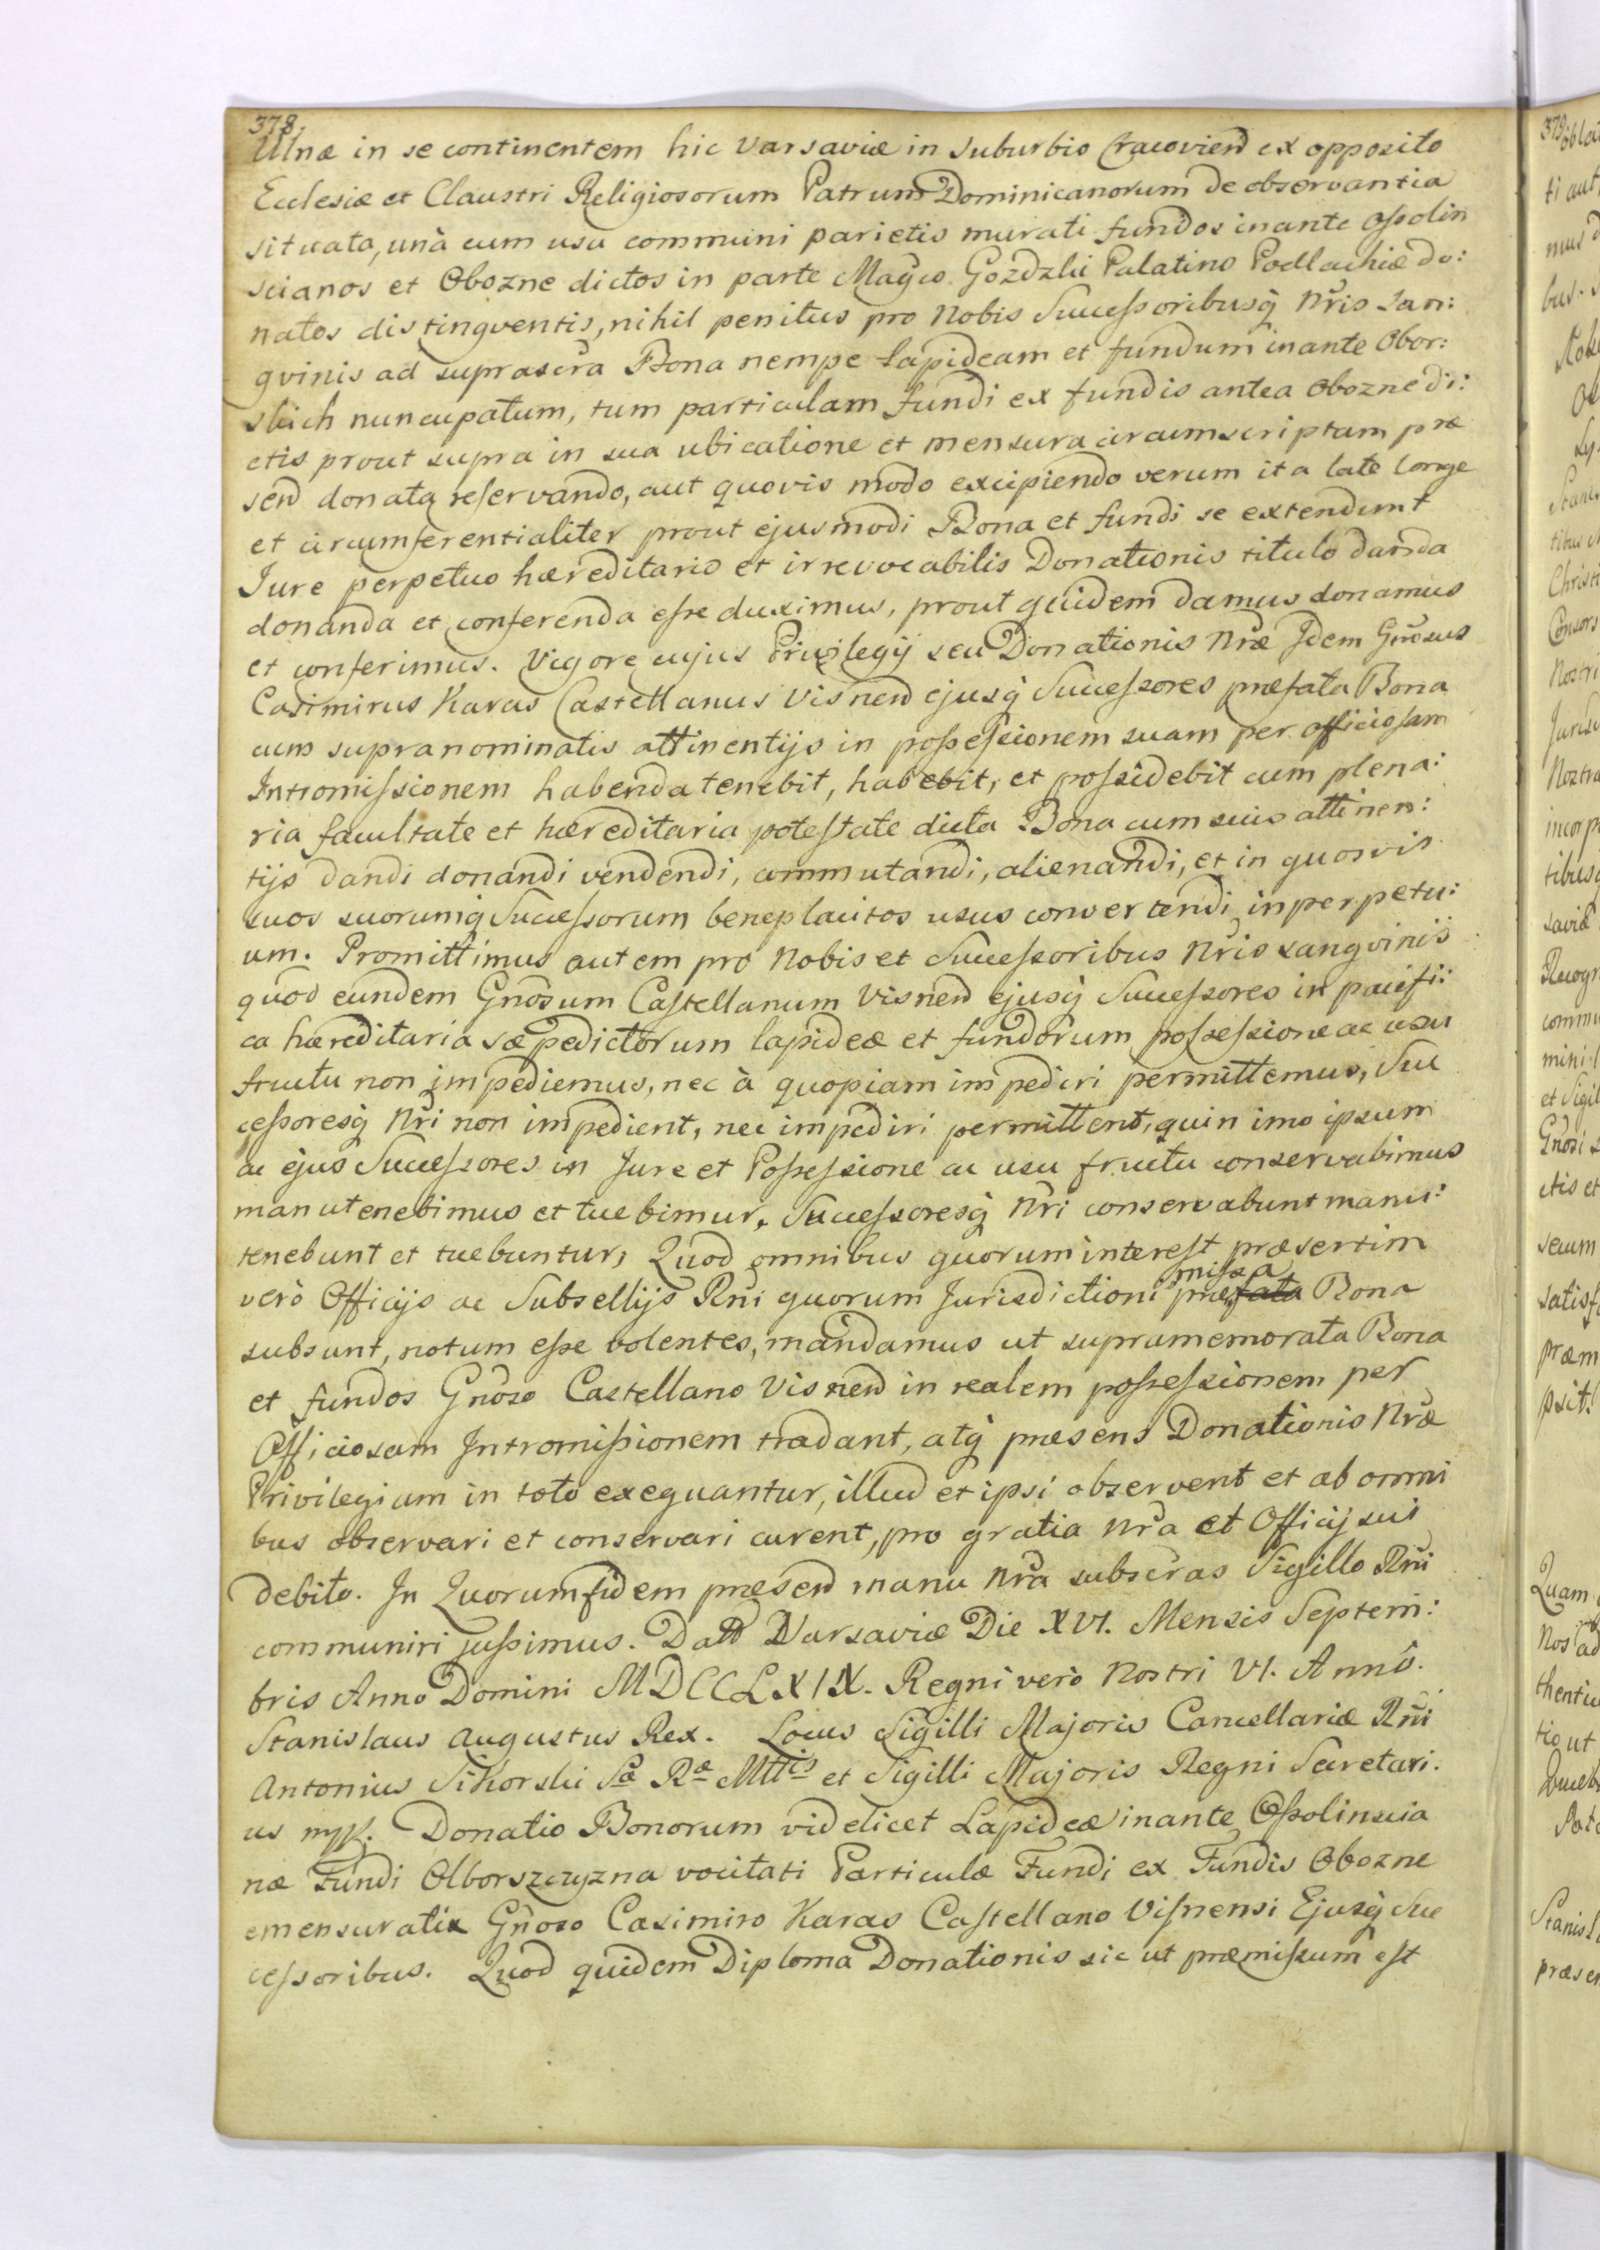 378.
Ulnæ in se continentem hic Varsaviæ in suburbio Cracovień ex opposito
Ecclesiæ et Claustri Religiosorum Patrum Dominicanorum de observantia
situata, unà cum usu communi parietis murati fundos inante Ossolin
scianos et Obozne dictos in parte Magco Gozdzki Palatino Podlachiæ do:
natos distingventis, nihil penitus pro Nobis Successoribusq̃ Nris San:
gvinis ad suprascra Bona nempe Lapideam et fundum inante Obor:
skich nuncupatum, tum particulam fundi ex fundis antea Obozne di:
ctis prout supra in sua ubicatione et mensura circumscriptam præ
send donata reservando, aut quovis modo excipiendo verum ita late longe
et circumferentialiter prout ejusmodi Bona et fundi se extendunt
Jure perpetuo hæreditario et irrevocabilis Donationis titulo danda
donanda et conferenda esse duximus, prout quidem damus donamus
et conferimus. Vigore cujus Privilegij seu Donationis Nræ Jdem Gnosus
Casimirus Karas Castellanus Visnend ejusq̃ Successores præfata Bona
cum supranominatis attinentijs in possessionem suam per officiosam
Intromissionem habenda tenebit, habebit, et possidebit cum plena:
ria facultate et hæreditaria potestate dicta Bona cum suis attinen:
tijs dandi donandi vendendi, commutandi, alienandi, et in quosvis
suos suorumq̃ Successorum beneplacitos usus convertendi in perpetu:
um. Promittimus autem pro Nobis et Successoribus Nris sangvinis
quod eundem Gnosum Castellanum Visnend ejusq̃ Successores in pacifi:
ca hæreditaria sæpedictorum lapideæ et fundorum possessione ac usu
fructu non impediemus, nec à quopiam impediri permittemus, Suc
cessoresq̃ Nri non impedient, nec impediri permittent, quin imo ipsum
ac ejus Successores in Jure et Possessione ac usu fructu conservabimus
manutenebimus et tuebimur, Successoresq̃ Nri conservabunt manu:
tenebunt et tuebuntur, Quod omnibus quorum interest præsertim
verò Officijs ac Subsellijs Rni quorum Jurisdictioni præfata missa Bona
subsunt, notum esse volentes, mandamus ut supramemorata Bona
et fundos Gnoso Castellano Visnend in realem possessionem per
Officiosam Intromissionem tradant, atq̃ præsens Donationis Nræ
Privilegium in toto exequantur, illud et ipsi observent et ab omni
bus observari et conservari curent, pro gratia Nra et Officij sui
debito. In Quorum fidem præsend manu Nra subscras Sigillo Rni
communiri jussimus. Datt Varsaviæ Die XVI. Mensis Septem:
bris Anno Domini MDCCLXIX. Regni verò Nostri VI. Annô.
Stanislaus Augustus Rex. Locus Sigilli Majoris Cancellariæ Rni
Antonius Sikorski Sæ Ræ Mttis et Sigilli Majoris Regni Secretari.
us mp. Donatio Bonorum videlicet Lapideæ inante Ossolinscia
næ Fundi Olborszczyzna vocitati Particulæ Fundi ex Fundis Obozne
emensuratix Gnoso Casimiro Karas Castellano Visnensi Ejusq̃ Suc
cessoribus. Quod quidem Diploma Donationis sic ut præmissum est
379